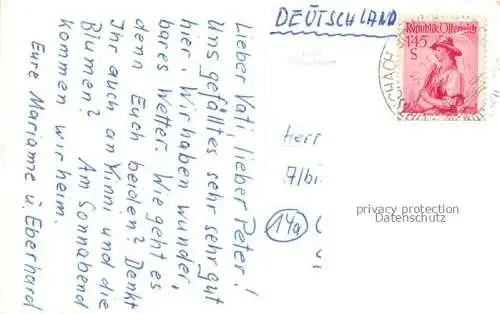 DEUTSCHLAND
Lieber Vati, lieber Peter!
Uns gefällt es sehr sehr gut
hier. Wir haben wunder,
bares Wetter. Wie geht es
denn Euch beiden? Denkt
Ihr auch an Kinni und die
Blumen? Am Sonnabend
kommen wir heim.
Eure Marianne u. Eberhard
Republik Österreich
1.45
S
Herr
Albi
(14a)
privacy protection
Datenschutz